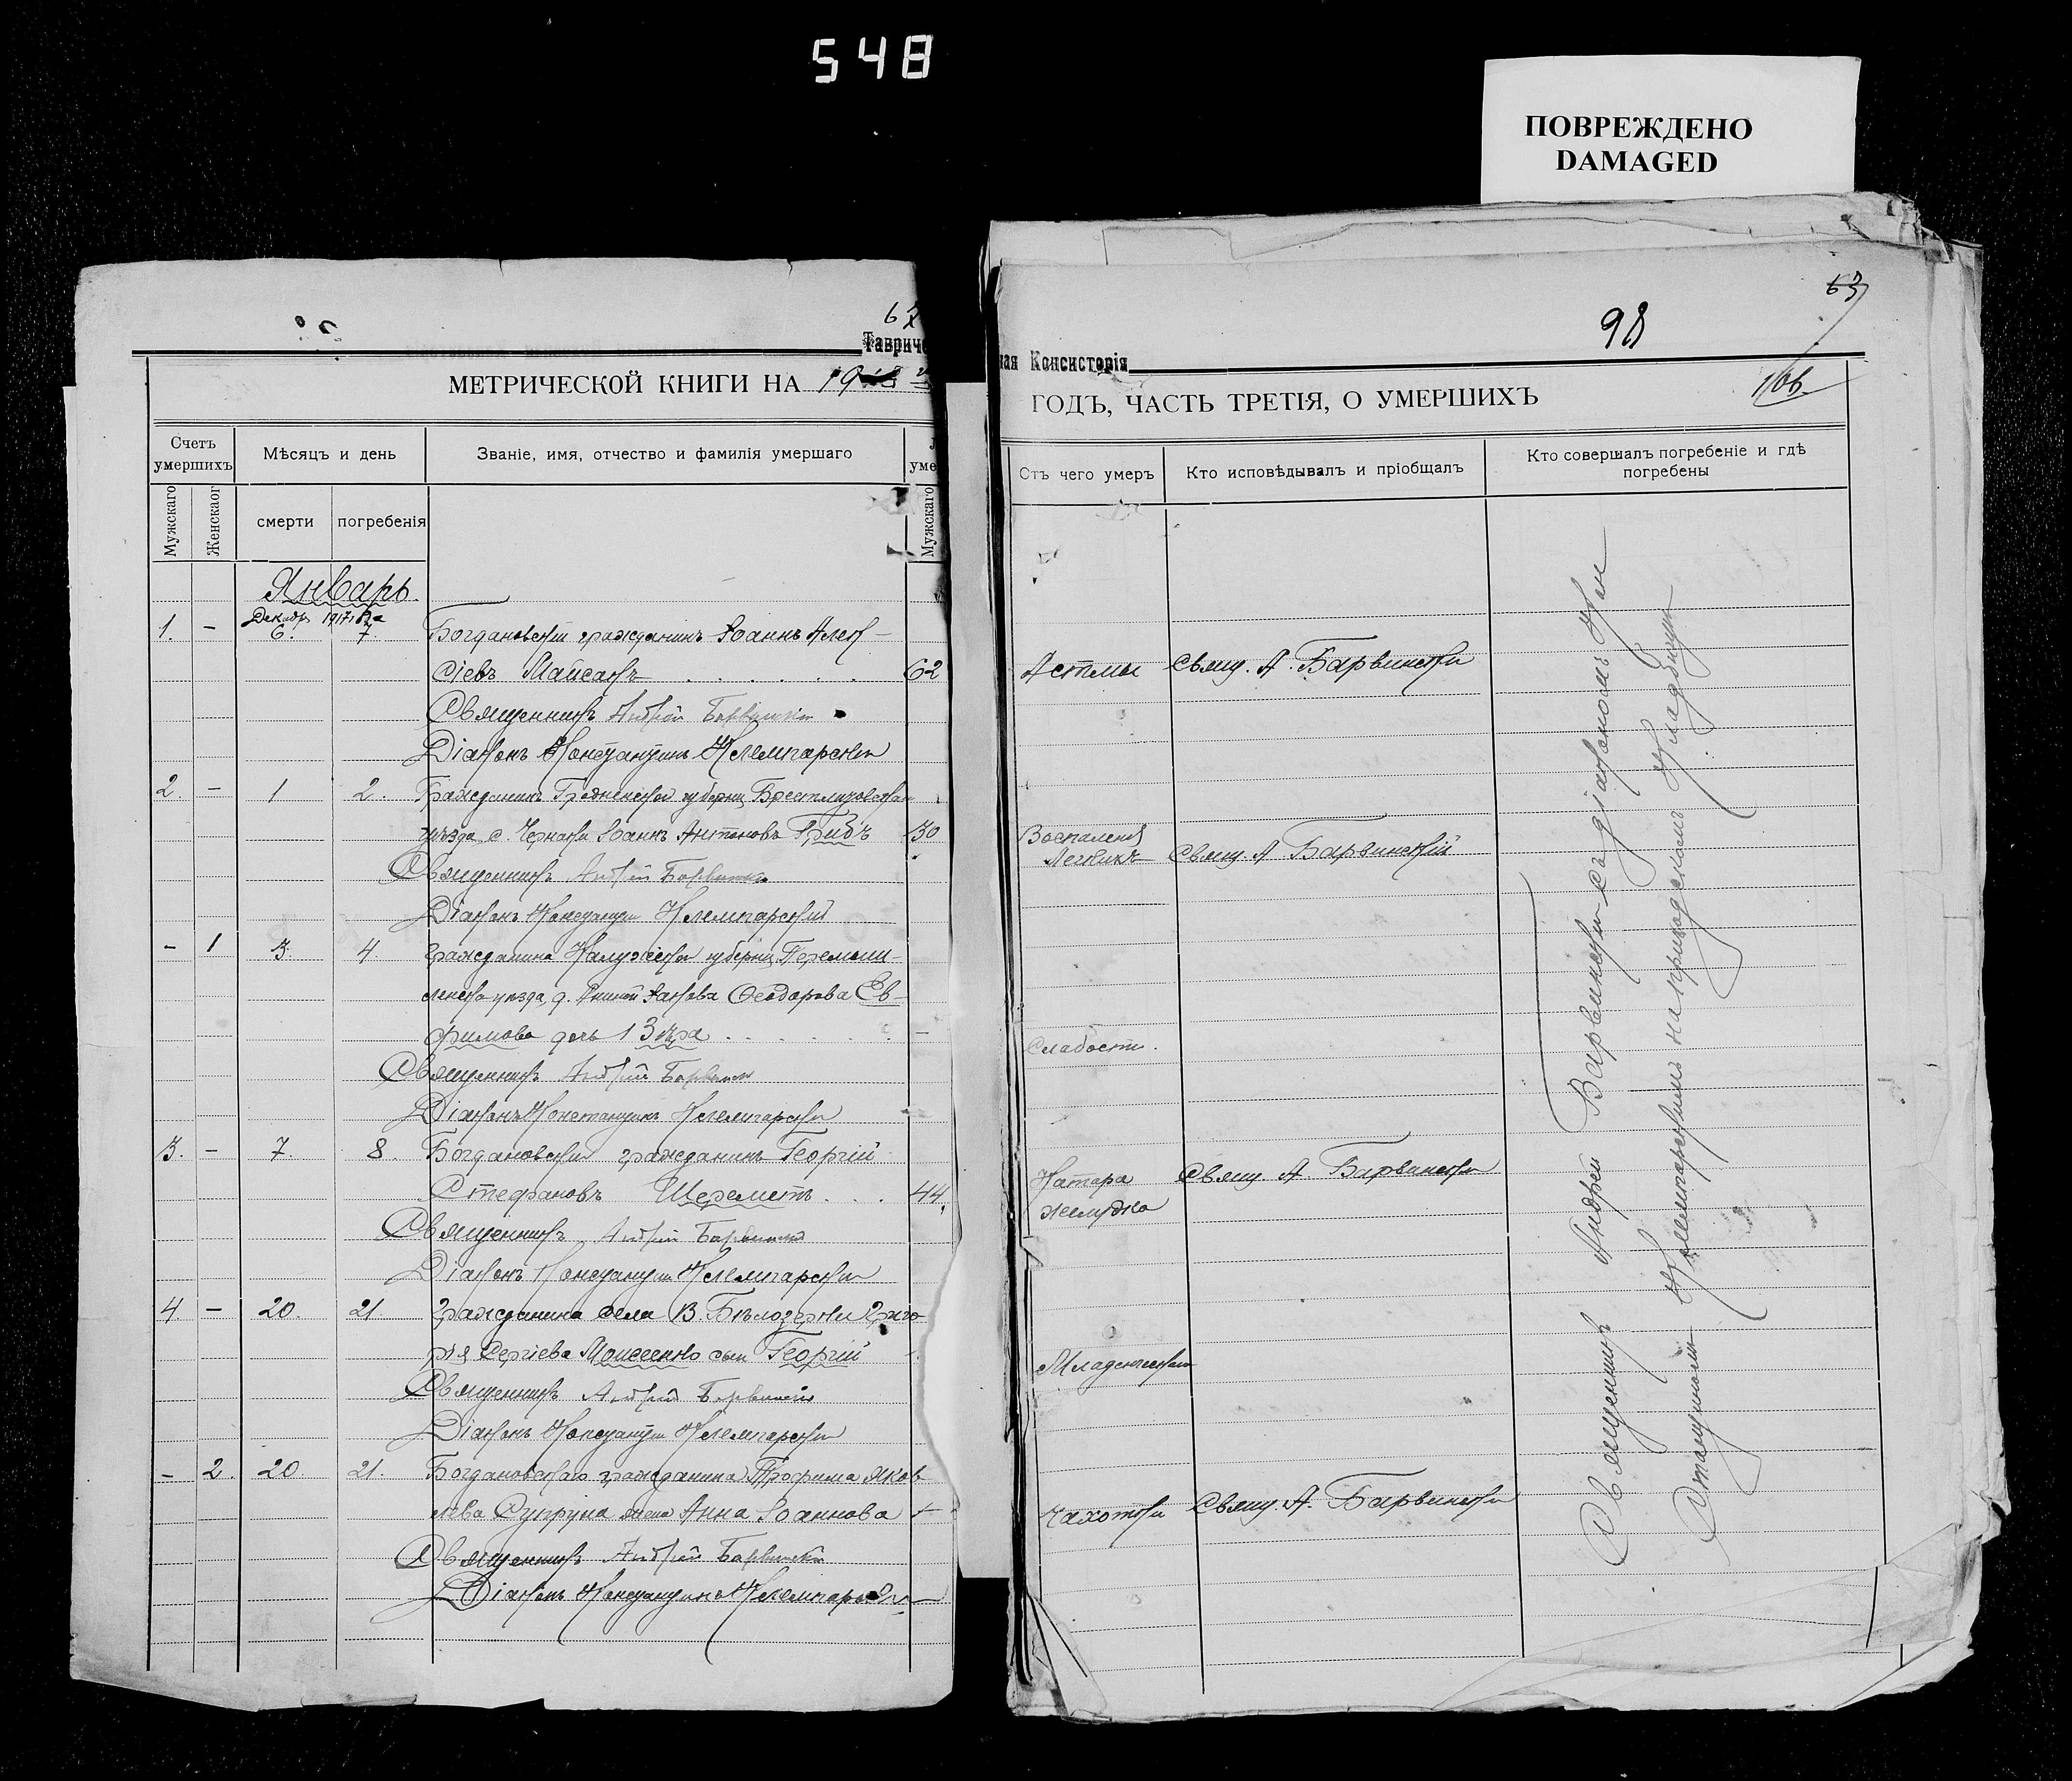 548
ПОВРЕЖДЕНО
DAMAGED
62
Тавриче
МЕТРИЧЕСКОЙ КНИГИ НА 19
Счетъ умершихъ
Мѣсяцъ и день
Званіе, имя, отчество и фамилія умершаго
уме
Мужскаго
Женскаог
смерти
погребенія
Мужскаго
Январь
Декабр 1917 года
1. – 6. 7. Богдановскій гражданинъ Іоаннъ Алек–
сіевъ Майсакъ . . . . . . 62
Священникъ Андрей Барвинскій
Діаконъ Константинъ Клемпарскій
2. – 1 2. Гражданинъ Гродненской губерніи Брестлитовскаго
уѣзда с. Іоаннъ Антоновъ Грибъ 30
Священникъ Андрей Барвинскій
Діаконъ Константинъ Клемпарскій
– 1 3. 4. гражданина Калужской губерніи Перемыш–
льскаго уѣзда, д. Іакова Ѳеодорова Ев–
фимова дочь 13 –
Священникъ Андрей Барвинскій
Діаконъ Константинъ Клемпарскій
3. – 7. 8. Богдановскій гражданинъ Георгій
Стефановъ Шереметъ . . . 44
Священникъ Андрей Барвинскій
Діаконъ Константинъ Клемпарскій
4. – 20. 21. гражданина села В. Бѣлозерки Григо
рія Сергіева Моисеенко сынъ Георгій
Священникъ Андрей Барвинскій
Діаконъ Константинъ Клемпарскій
– 2. 20. 21. Богдановскаго гражданина Трофима Яков
лева Супруна жена Анна Іоаннова
Священникъ Андрей Барвинскій
Діаконъ Константинъ Клемпарскій
63
98
ная Консисторія
ГОДЪ, ЧАСТЬ ТРЕТІЯ, О УМЕРШИХЪ
Отъ чего умеръ
Кто исповѣдывалъ и пріобщалъ
Кто совершалъ погребеніе и гдѣ погребены
Астмы Свящ. А. Барвинскій
Воспаленія
Легкихъ Свящ. А. Барвинскій
Слабости.
Катара Свящ. А. Барвинскій
желудка
Младенческой
Чахотки Свящ. А. Барвинскій
Священникъ Андрей Барвинскій съ діакономъ Кон
стантиномъ Клемпарскимъ на приходскомъ кладбищѣ